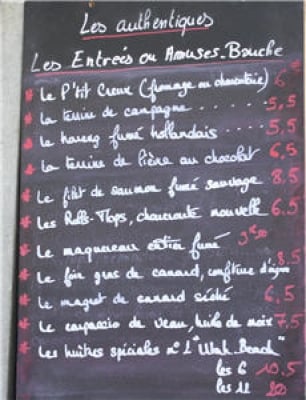 Les authentiques
Les Entrées ou Amuses-Bouche
* Le P'tit Creux (fromage ou charcuterie) 6€
* La terrine de campagne ..... 5,5
* Le hareng fumé hollandais ..... 5,5
* La terrine de lièvre au chocolat 6,5
* Le filet de saumon fumé sauvage 8,5
* Les Roll-Mops, choucroute nouvelle 6.5
* Le maquereau entier fumé 3€50
* Le foie gras de canard, confiture d'oignon 8,5
* Le magret de canard séché 6,5
* Le carpaccio de veau, huile de noix 7,5
* Les huîtres spéciales n° 2 "Utah-Beach"
les 6 10.5
les 12 20